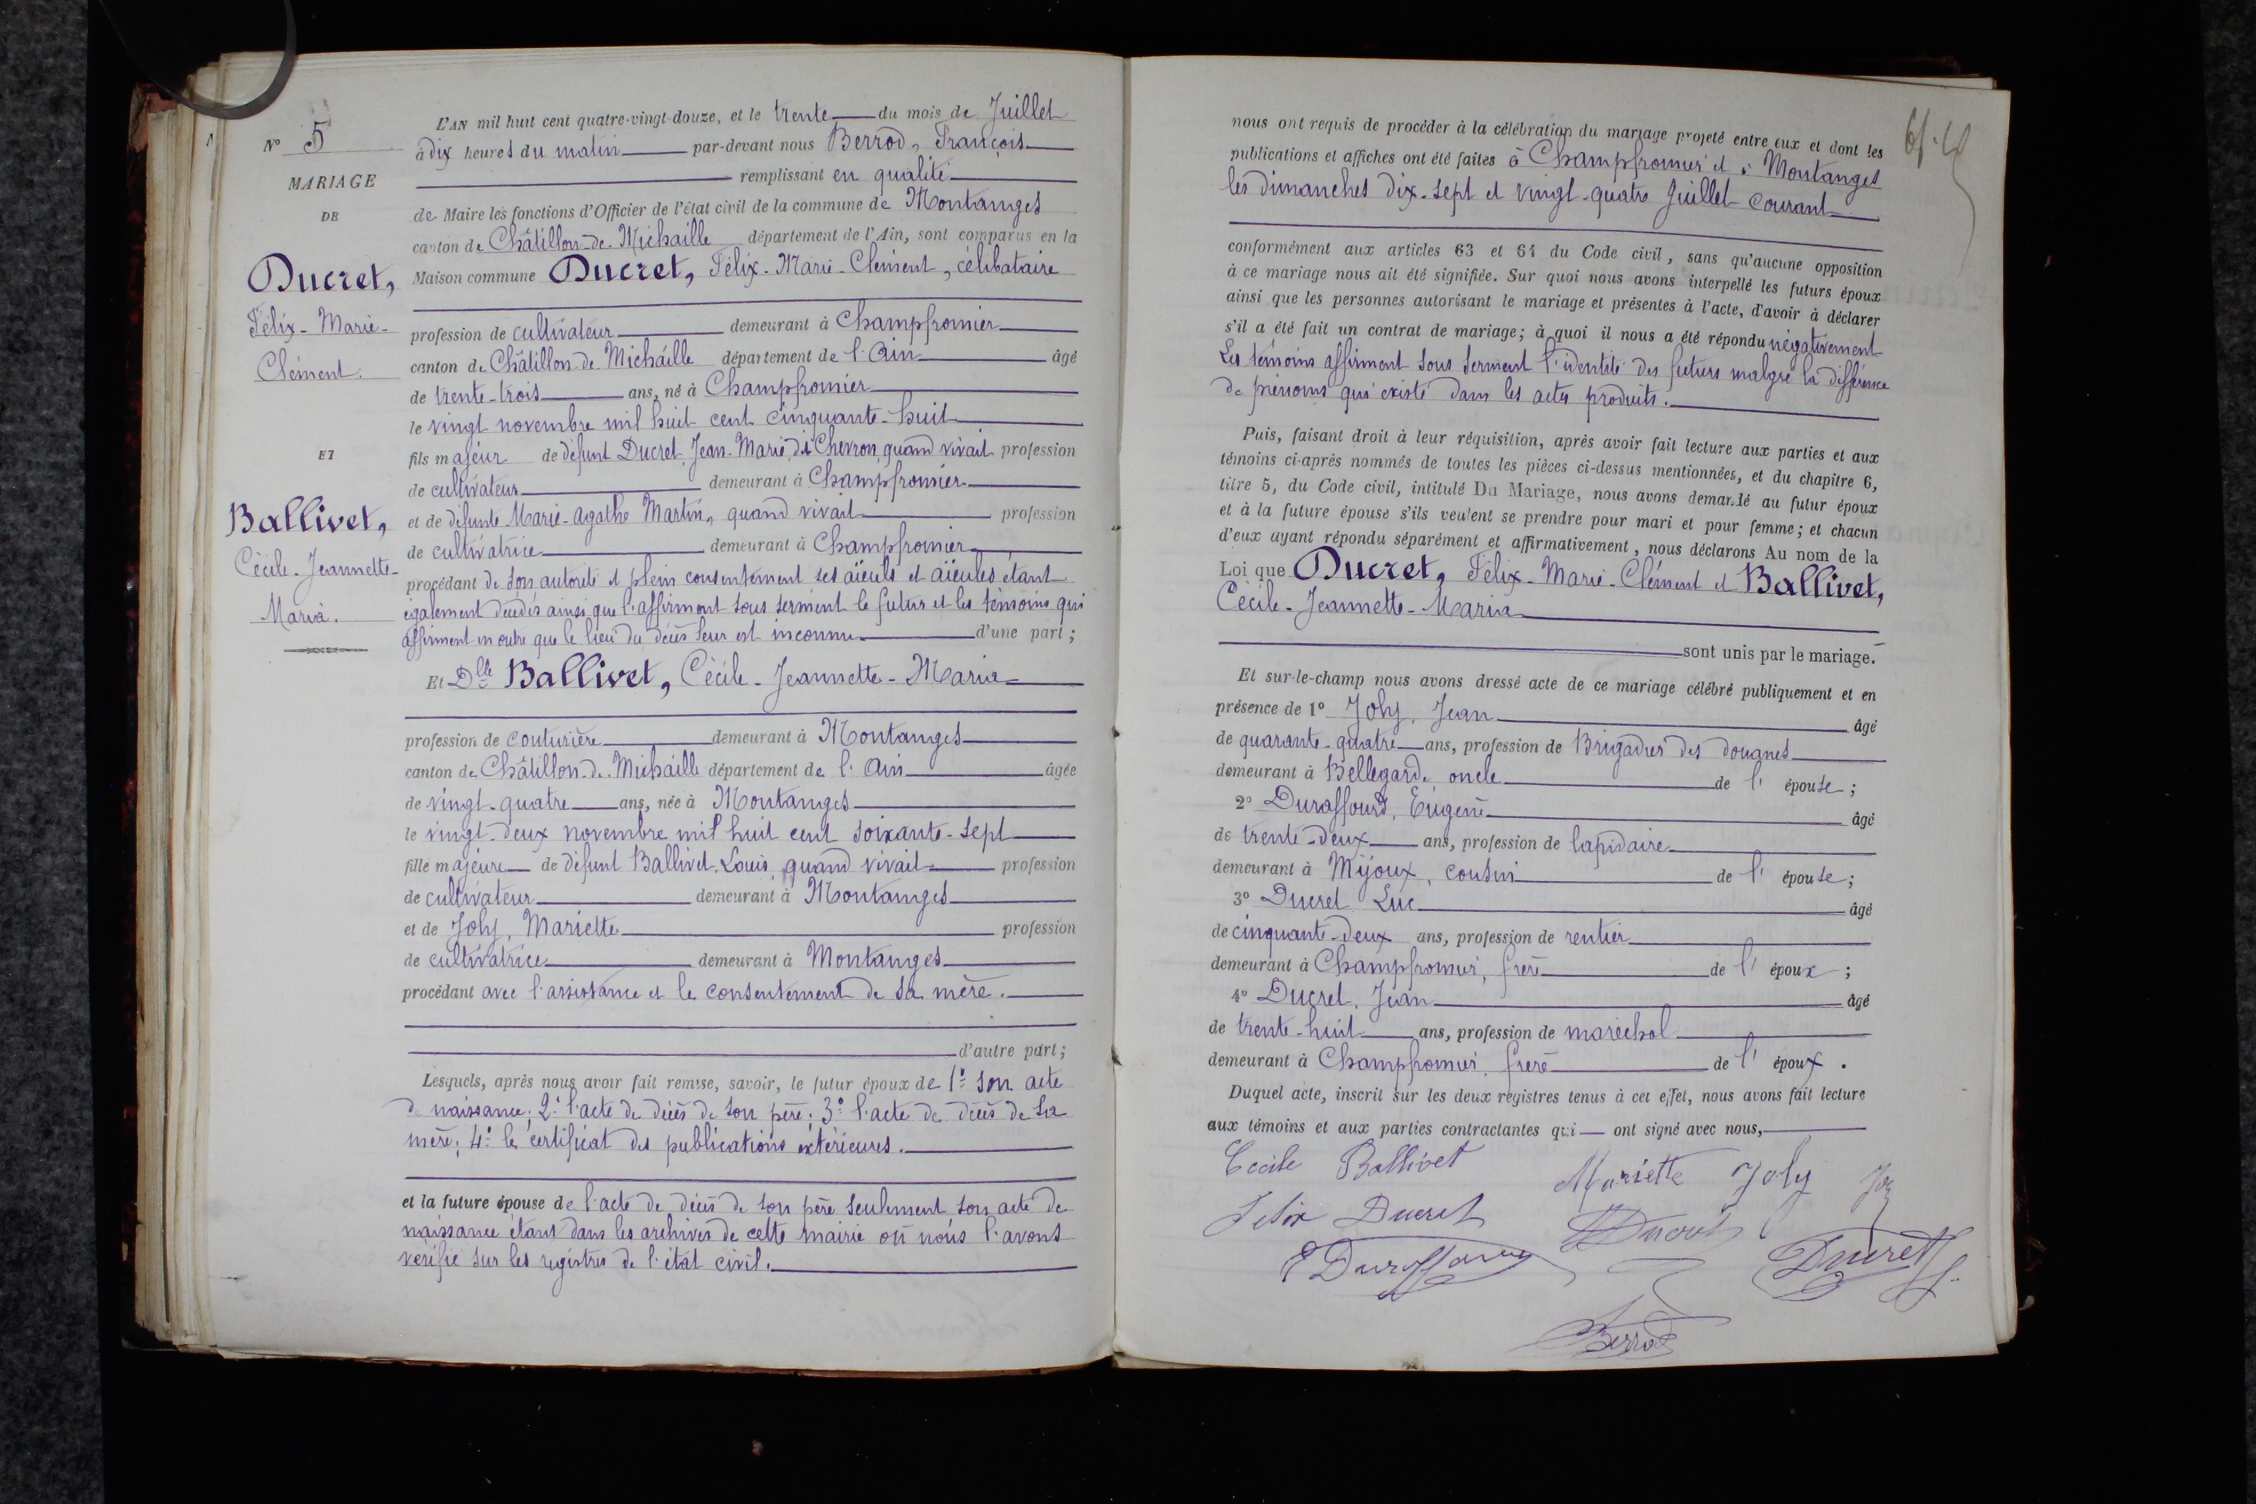 N° 5
MARIAGE
DE
Ducret,
Félix-Marie-
Clément.
ET
Ballivet,
Cécile-Jeannette-
Maria.
L'AN mil huit cent quatre-vingt-douze, et le trente du mois de Juillet
à dix heures du matin par-devant nous Berrod, François
remplissant en qualité
de Maire les fonctions d'Officier de l'état civil de la commune de Montanges
canton de Châtillon-de-Michaille département de l'Ain, sont comparus en la
Maison commune Ducret, Félix-Marie-Clément, célibataire
profession de cultivateur demeurant à Champfromier
canton de Châtillon-de-Michaille département de l'Ain âgé
de trente-trois ans, né à Champfromier
le vingt novembre mil huit cent cinquante-huit
fils majeur de défunt Ducret, Jean-Marie, dit Chevron, quand vivait profession
de cultivateur demeurant à Champfromier
et de défunte Marie-Agathe Martin, quand vivait profession
de cultivatrice demeurant à Champfromier
procédant de son autorité et plein consentement ses aïeuls et aïeules étant
également décédés ainsi que l'affirment sous serment le futur et les témoins qui
affirment en outre que le lieu du décès leur est inconnu d'une part;
Et Dlle Ballivet, Cécile-Jeannette-Maria
profession de couturière demeurant à Montanges
canton de Châtillon-de-Michaille département de l'Ain âgée
de vingt-quatre ans, née à Montanges
le vingt-deux novembre mil huit cent soixante-sept
fille majeure de défunt Ballivet, Louis, quand vivait profession
de cultivateur demeurant à Montanges
et de Joly, Mariette profession
de cultivatrice demeurant à Montanges
procédant avec l'assistance et le consentement de sa mère.
d'autre part;
Lesquels, après nous avoir fait remise, savoir, le futur époux de 1° son acte
de naissance; 2° l'acte de décès de son père; 3° l'acte de décès de sa
mère; 4° le certificat des publications extérieures.
et la future épouse de l'acte de décès de son père seulement son acte de
naissance étant dans les archives de cette mairie où nous l'avons
vérifié sur les registres de l'état civil.
nous ont requis de procéder à la célébration du mariage projeté entre eux et dont les
publications et affiches ont été faites à Champfromier et à Montanges
les dimanches dix-sept et vingt-quatre Juillet courant
conformément aux articles 63 et 64 du Code civil, sans qu'aucune opposition
à ce mariage nous ait été signifiée. Sur quoi nous avons interpellé les futurs époux
ainsi que les personnes autorisant le mariage et présentes à l'acte, d'avoir à déclarer
s'il a été fait un contrat de mariage; à quoi il nous a été répondu négativement
Les témoins affirment sous serment l'identité des futurs malgré la différence
de prénoms qui existe dans les actes produits.
Puis, faisant droit à leur réquisition, après avoir fait lecture aux parties et aux
témoins ci-après nommés de toutes les pièces ci-dessus mentionnées, et du chapitre 6,
titre 5, du Code civil, intitulé Du Mariage, nous avons demandé au futur époux
et à la future épouse s'ils veulent se prendre pour mari et pour femme; et chacun
d'eux ayant répondu séparément et affirmativement, nous déclarons Au nom de la
Loi que Ducret, Félix-Marie-Clément et Ballivet,
Cécile-Jeannette-Maria
sont unis par le mariage.
Et sur-le-champ nous avons dressé acte de ce mariage célébré publiquement et en
présence de 1° Joly, Jean âgé
de quarante-quatre ans, profession de Brigadier des douanes
demeurant à Bellegarde, oncle de l'épouse;
2° Duraffourd, Eugène âgé
de trente-deux ans, profession de lapidaire
demeurant à Mijoux, cousin de l'épouse;
3° Ducret Luc âgé
de cinquante-deux ans, profession de rentier
demeurant à Champfromier, frère de l'époux;
4° Ducret, Jean âgé
de trente-huit ans, profession de maréchal
demeurant à Champfromier, frère de l'époux.
Duquel acte, inscrit sur les deux registres tenus à cet effet, nous avons fait lecture
aux témoins et aux parties contractantes qui ont signé avec nous,
Cecile Ballivet Mariette Joly
Felix Ducret Ducret
E Duraffourg Ducret
Berrod